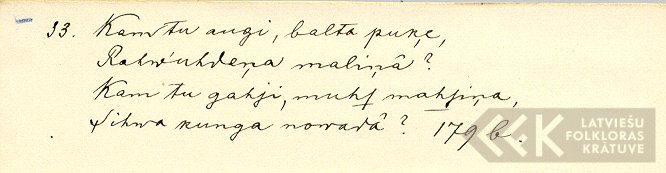 33. Kam tu augi, balta puķe,
Rahw'uhdeņa maliņâ?
Kam tu gahji, muhs mahsiņa,
Sihwa kunga nowadâ? 179 b.
LATVIEŠU
FOLKLORAS
KRĀTUVE